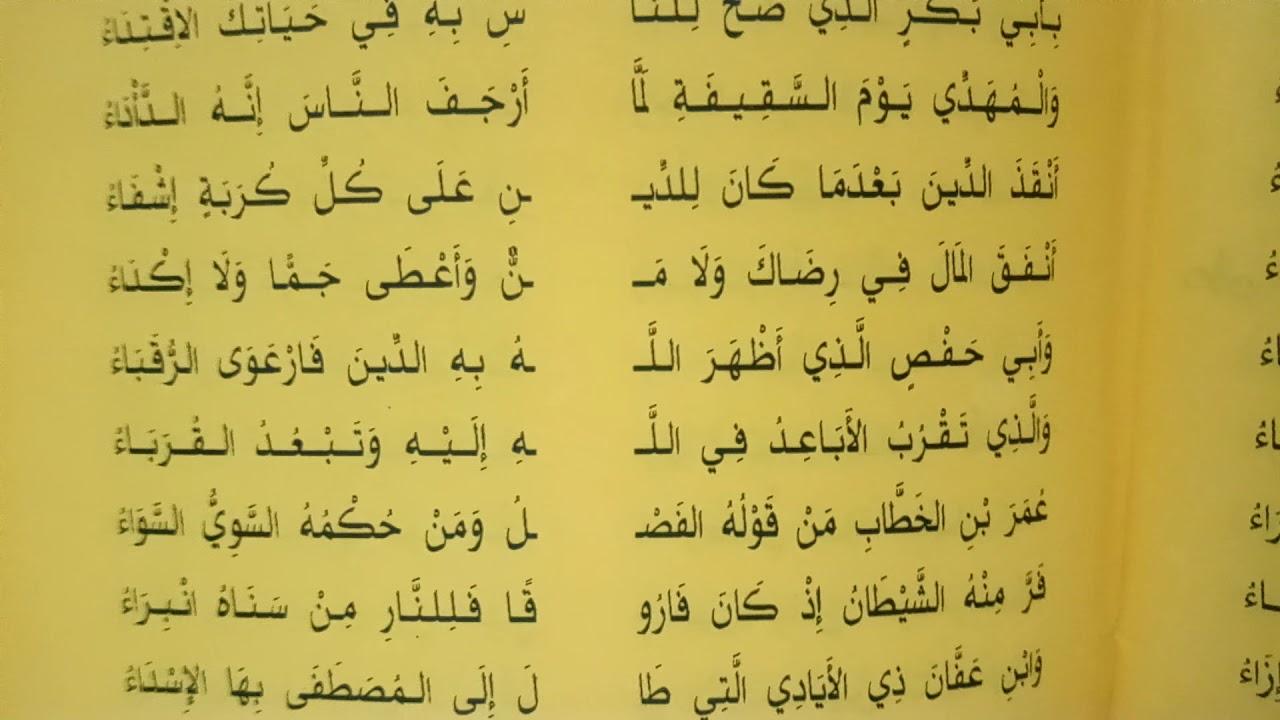 بِأَبِي بَكْرٍ الَّذِي صَحَّ لِلنَّا سِ بِهِ فِي حَيَاتِكَ الِاقْتِدَاءُ
وَالْمُهَدِّي يَوْمَ السَّقِيفَةِ لَمَّا أَرْجَفَ النَّاسَ إِنَّهُ الدَّأْدَاءُ
أَنْقَذَ الدِّينَ بَعْدَمَا كَانَ لِلدِّيـ ـنِ عَلَى كُلِّ كُرَبَةٍ إِشْفَاءُ
أَنْفَقَ المَالَ فِي رِضَاكَ وَلَا مَـ ـنٌّ وَأَعْطَى جَمًّا وَلَا إِكْدَاءُ
وَأَبِي حَفْصٍ الَّذِي أَظْهَرَ اللَّـ ـهُ بِهِ الدِّينَ فَارْعَوَى الرُّقَبَاءُ
وَالَّذِي تَقْرُبُ الأَبَاعِدُ فِي اللَّـ ـهِ إِلَيْهِ وَتَبْعُدُ القُرَبَاءُ
عُمَرَ بْنِ الخَطَّابِ مَنْ قَوْلُهُ الفَصْـ ـلُ وَمَنْ حُكْمُهُ السَّوِيُّ السَّوَاءُ
فَرَّ مِنْهُ الشَّيْطَانُ إِذْ كَانَ فَارُو قًا فَلِلنَّارِ مِنْ سَنَاهُ انْبِرَاءُ
وَابْنِ عَفَّانَ ذِي الأَيَادِي الَّتِي طَا لَ إِلَى المُصَطَفَى بِهَا الإِسْدَاءُ